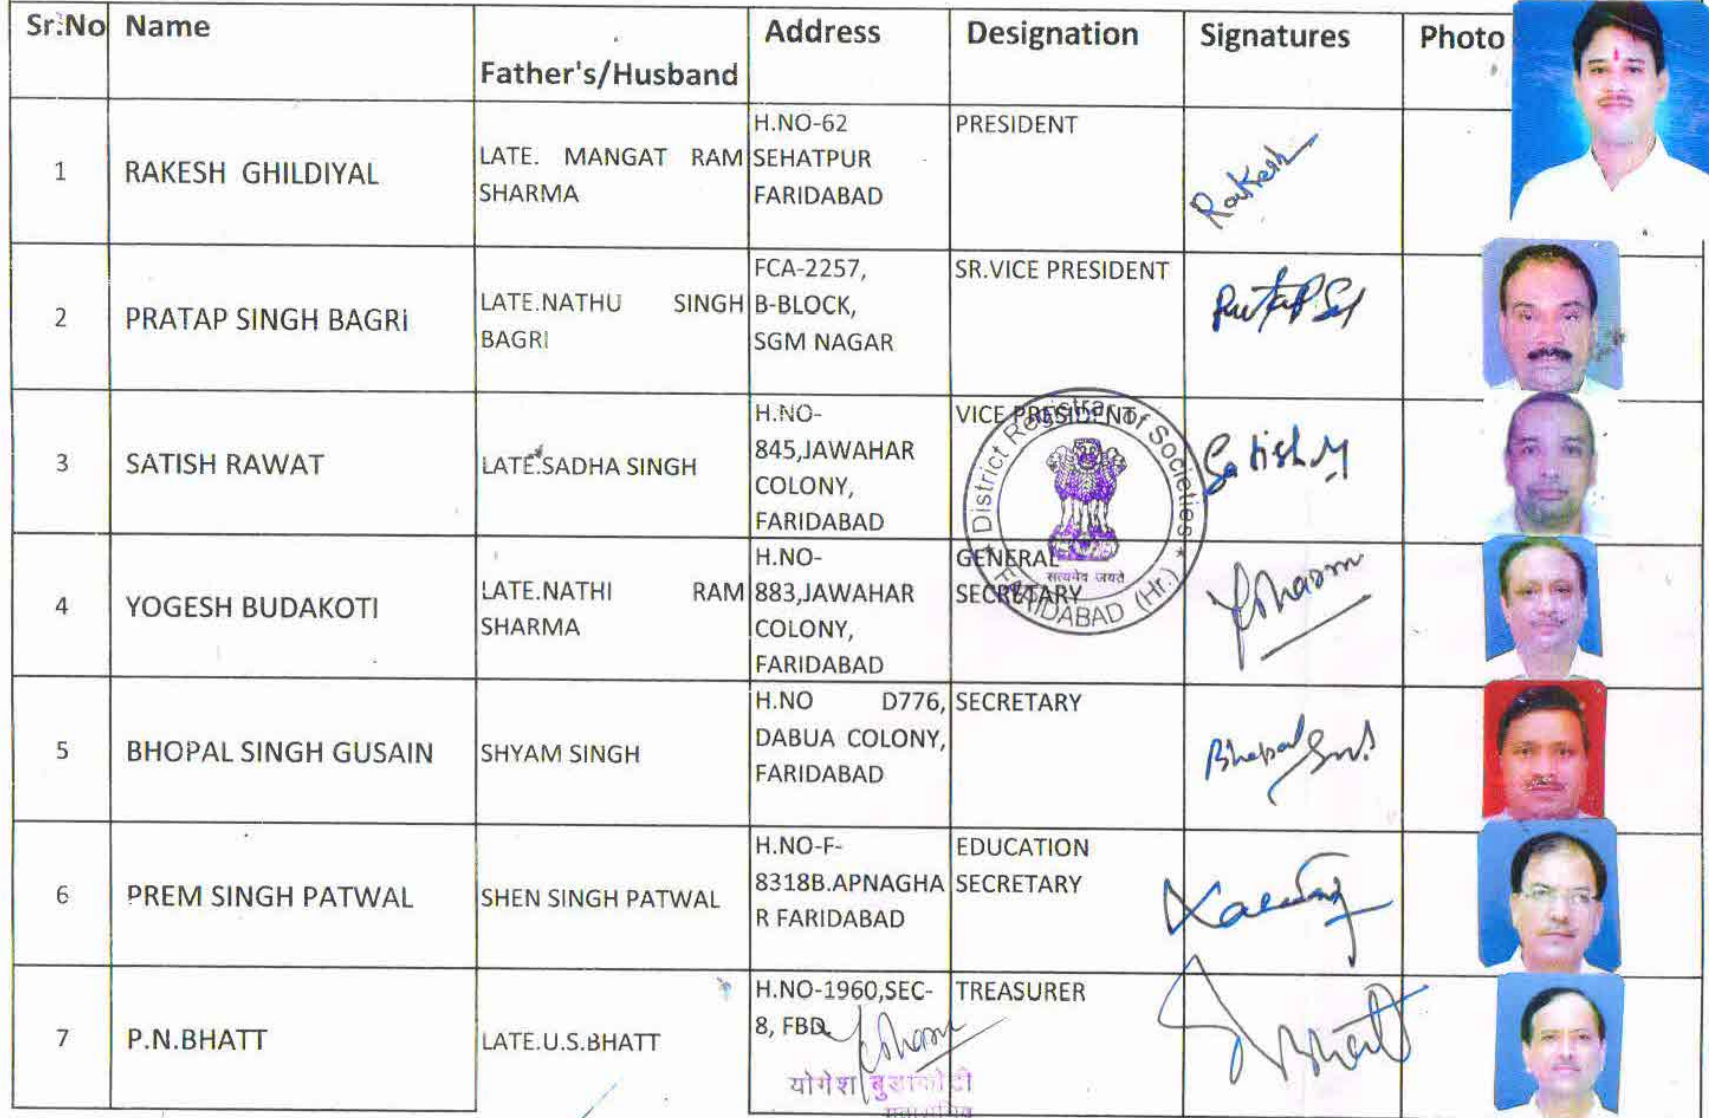 Sr.No Name Father's/Husband Address Designation Signatures Photo
1 RAKESH GHILDIYAL LATE. MANGAT RAM SHARMA H.NO-62 SEHATPUR FARIDABAD PRESIDENT Rakesh
2 PRATAP SINGH BAGRI LATE.NATHU SINGH BAGRI FCA-2257, B-BLOCK, SGM NAGAR SR.VICE PRESIDENT
3 SATISH RAWAT LATE.SADHA SINGH H.NO-845,JAWAHAR COLONY, FARIDABAD VICE PRESIDENT Satish
District Registrar of Societies
सत्यमेव जयते
FARIDABAD (Hr.)
4 YOGESH BUDAKOTI LATE.NATHI RAM SHARMA H.NO-883,JAWAHAR COLONY, FARIDABAD GENERAL SECRETARY
5 BHOPAL SINGH GUSAIN SHYAM SINGH H.NO D776, DABUA COLONY, FARIDABAD SECRETARY Bhopal
6 PREM SINGH PATWAL SHEN SINGH PATWAL H.NO-F-8318B.APNAGHAR FARIDABAD EDUCATION SECRETARY
7 P.N.BHATT LATE.U.S.BHATT H.NO-1960,SEC-8, FBD. TREASURER Bhatt
योगेश बुडाकोटी